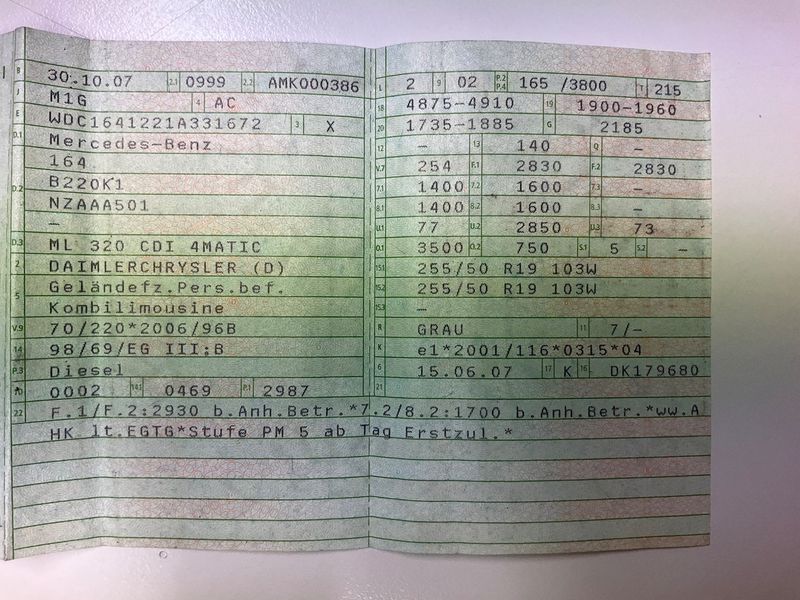 B 30.10.07 2.1 0999 2.2 AMK000386
J M1G 4 AC
E WDC1641221A331672 3 X
D.1 Mercedes-Benz
164
D.2 B220K1
NZAAA501
–
D.3 ML 320 CDI 4MATIC
2 DAIMLERCHRYSLER (D)
5 Geländefz.Pers.bef.
Kombilimousine
V.9 70/220*2006/96B
14 98/69/EG III;B
P.3 Diesel
10 0002 14.1 0469 P.1 2987
L 2 9 02 P.2 P.4 165 /3800 T 215
18 4875-4910 19 1900-1960
20 1735-1885 G 2185
12 – 13 140 Q –
V.7 254 F.1 2830 F.2 2830
7.1 1400 7.2 1600 7.3 –
8.1 1400 8.2 1600 8.3 –
U.1 77 U.2 2850 U.3 73
O.1 3500 O.2 750 S.1 5 S.2 –
15.1 255/50 R19 103W
15.2 255/50 R19 103W
15.3 –
R GRAU 11 7/–
K e1*2001/116*0315*04
6 15.06.07 17 K 16 DK179680
21
22 F.1/F.2:2930 b.Anh.Betr.*7.2/8.2:1700 b.Anh.Betr.*ww.A
HK lt.EGTG*Stufe PM 5 ab Tag Erstzul.*